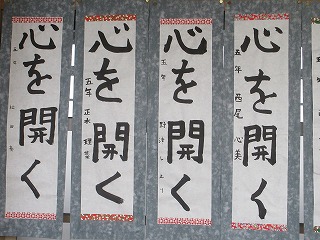 心を開く
心を開く
五年
心を開く
五年
心を開く
五年 西尾 心美